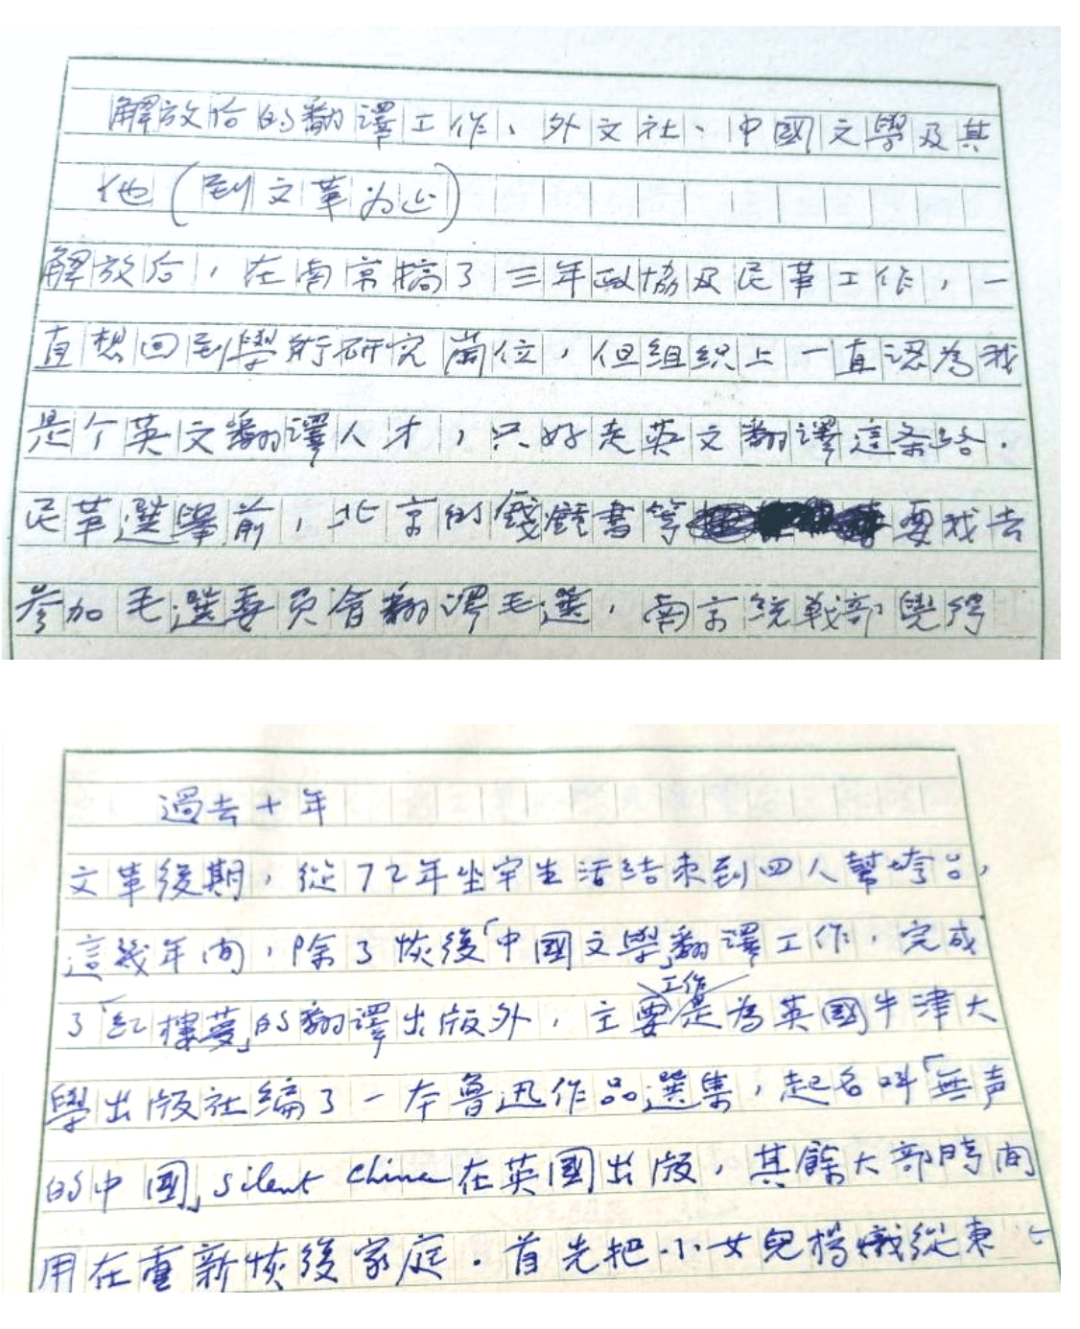 解放后的翻譯工作、外文社、中國文學及其
他(到文革为止)
解放后,在南京搞了三年政協及民革工作,一
直想回到學術研究崗位,但组织上一直認為我
是个英文翻譯人才,只好走英文翻譯這条路.
民革選舉前,北京的錢鍾書等要我去
参加毛選委员會翻譯毛選,南京統戰部覺得
過去十年
文革後期,從72年坐牢生活結束到四人幫垮台,
這幾年间,除了恢復「中國文學」翻譯工作,完成
了「紅樓夢」的翻譯出版外,主要工作是為英國牛津大
學出版社编了一本魯迅作品選集,起名叫「無声
的中國」silent China在英國出版,其餘大部時间
用在重新恢復家庭.首先把小女兒楊熾從東